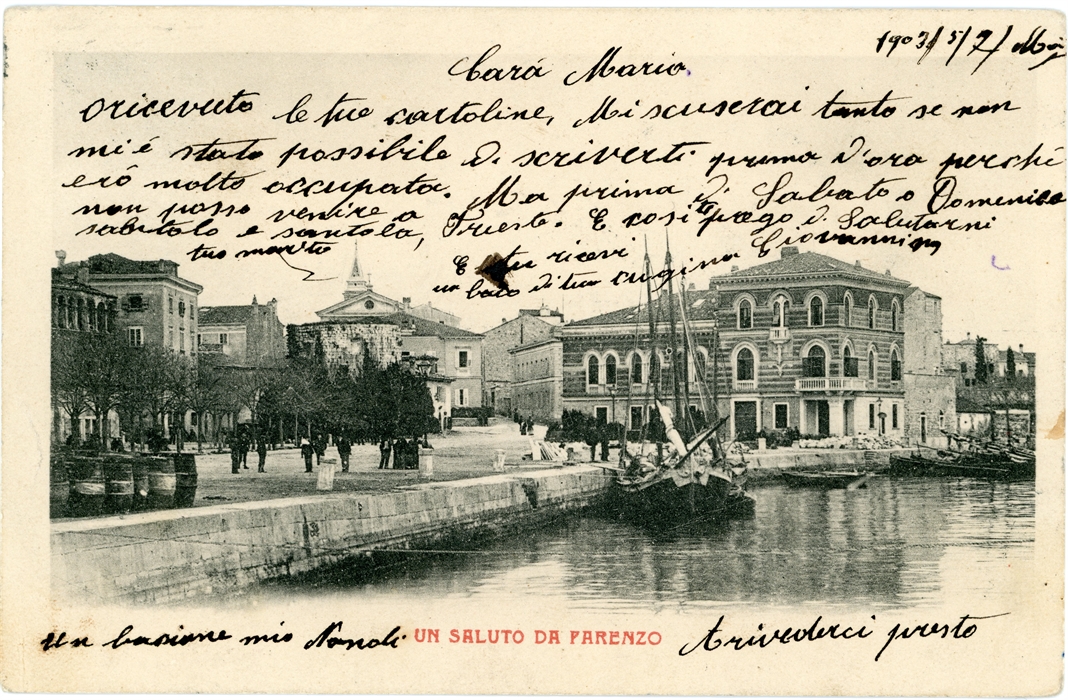 1903/5/7/
Cará Maria
O riceveuto le tue cartoline, Mi scuserai tanto se non
mi é stato possibile di scriverti prima d'ora perché
eró molto occupata. Ma prima di Sabato o Domenica
non posso venire a Trieste. E cosi te pego di Salutarni
sabutolo e santola,
tuo marito
Giovannina
E tu ricevi
un baco di tua cugina
Un bacione mio Nanoli
UN SALUTO DA PARENZO
Arivederci presto